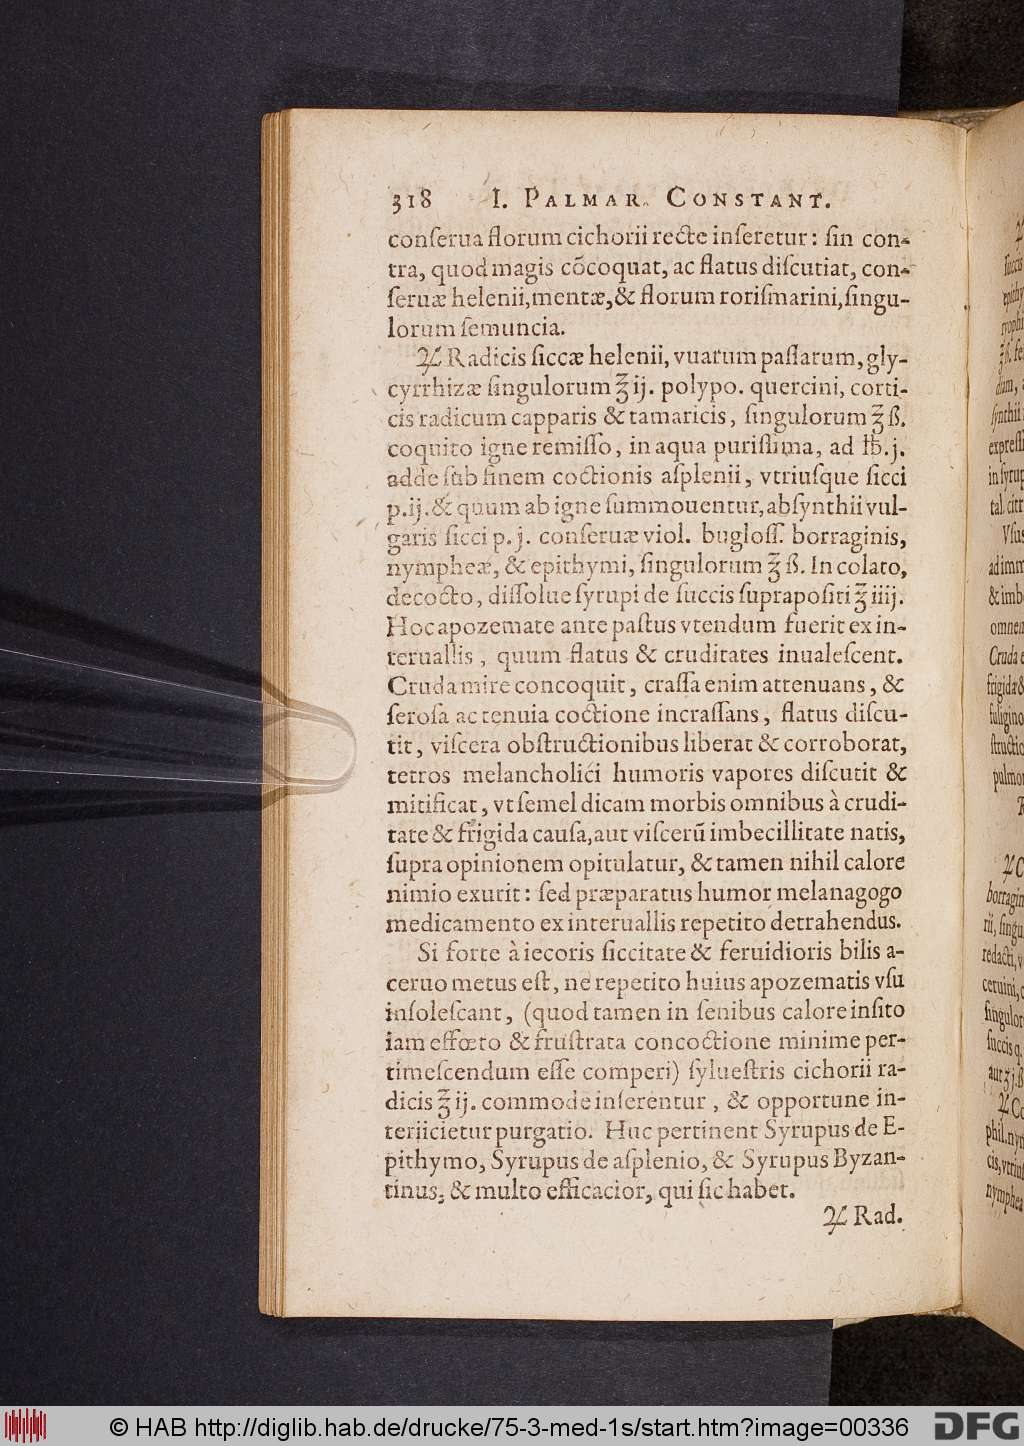 318 I. PALMAR. CONSTANT.
conſerua florum cichorii recte inſeretur: ſin con-
tra, quod magis cõcoquat, ac flatus diſcutiat, con-
ſeruæ helenii, mentæ, & florum roriſmarini, ſingu-
lorum ſemuncia.
♃ Radicis ſiccæ helenii, vuarum paſſarum, gly-
cyrrhizæ ſingulorum ℥ ij. polypo. quercini, corti-
cis radicum capparis & tamaricis, ſingulorum ℥ ß.
coquito igne remiſſo, in aqua puriſſima, ad ℔. j.
adde ſub finem coctionis aſplenii, vtriuſque ſicci
p. ij. & quum ab igne ſummouentur, abſynthii vul-
garis ſicci p. j. conſeruæ viol. bugloſſ. borraginis,
nympheæ, & epithymi, ſingulorum ℥ ß. In colato,
decocto, diſſolue ſyrupi de ſuccis ſuprapoſiti ℥ iiij.
Hoc apozemate ante paſtus vtendum fuerit ex in-
teruallis, quum flatus & cruditates inualeſcent.
Cruda mire concoquit, craſſa enim attenuans, &
ſeroſa ac tenuia coctione incraſſans, flatus diſcu-
tit, viſcera obſtructionibus liberat & corroborat,
tetros melancholici humoris vapores diſcutit &
mitificat, vt ſemel dicam morbis omnibus à crudi-
tate & frigida cauſa, aut viſcerũ imbecillitate natis,
ſupra opinionem opitulatur, & tamen nihil calore
nimio exurit: ſed præparatus humor melanagogo
medicamento ex interuallis repetito detrahendus.
Si forte à iecoris ſiccitate & feruidioris bilis a-
ceruo metus eſt, ne repetito huius apozematis vſu
inſoleſcant, (quod tamen in ſenibus calore inſito
iam effœto & fruſtrata concoctione minime per-
timeſcendum eſſe comperi) ſylueſtris cichorii ra-
dicis ℥ ij. commode inſerentur, & opportune in-
teriicietur purgatio. Huc pertinent Syrupus de E-
pithymo, Syrupus de aſplenio, & Syrupus Byzan-
tinus: & multo efficacior, qui ſic habet.
♃ Rad.
© HAB http://diglib.hab.de/drucke/75-3-med-1s/start.htm?image=00336
DFG